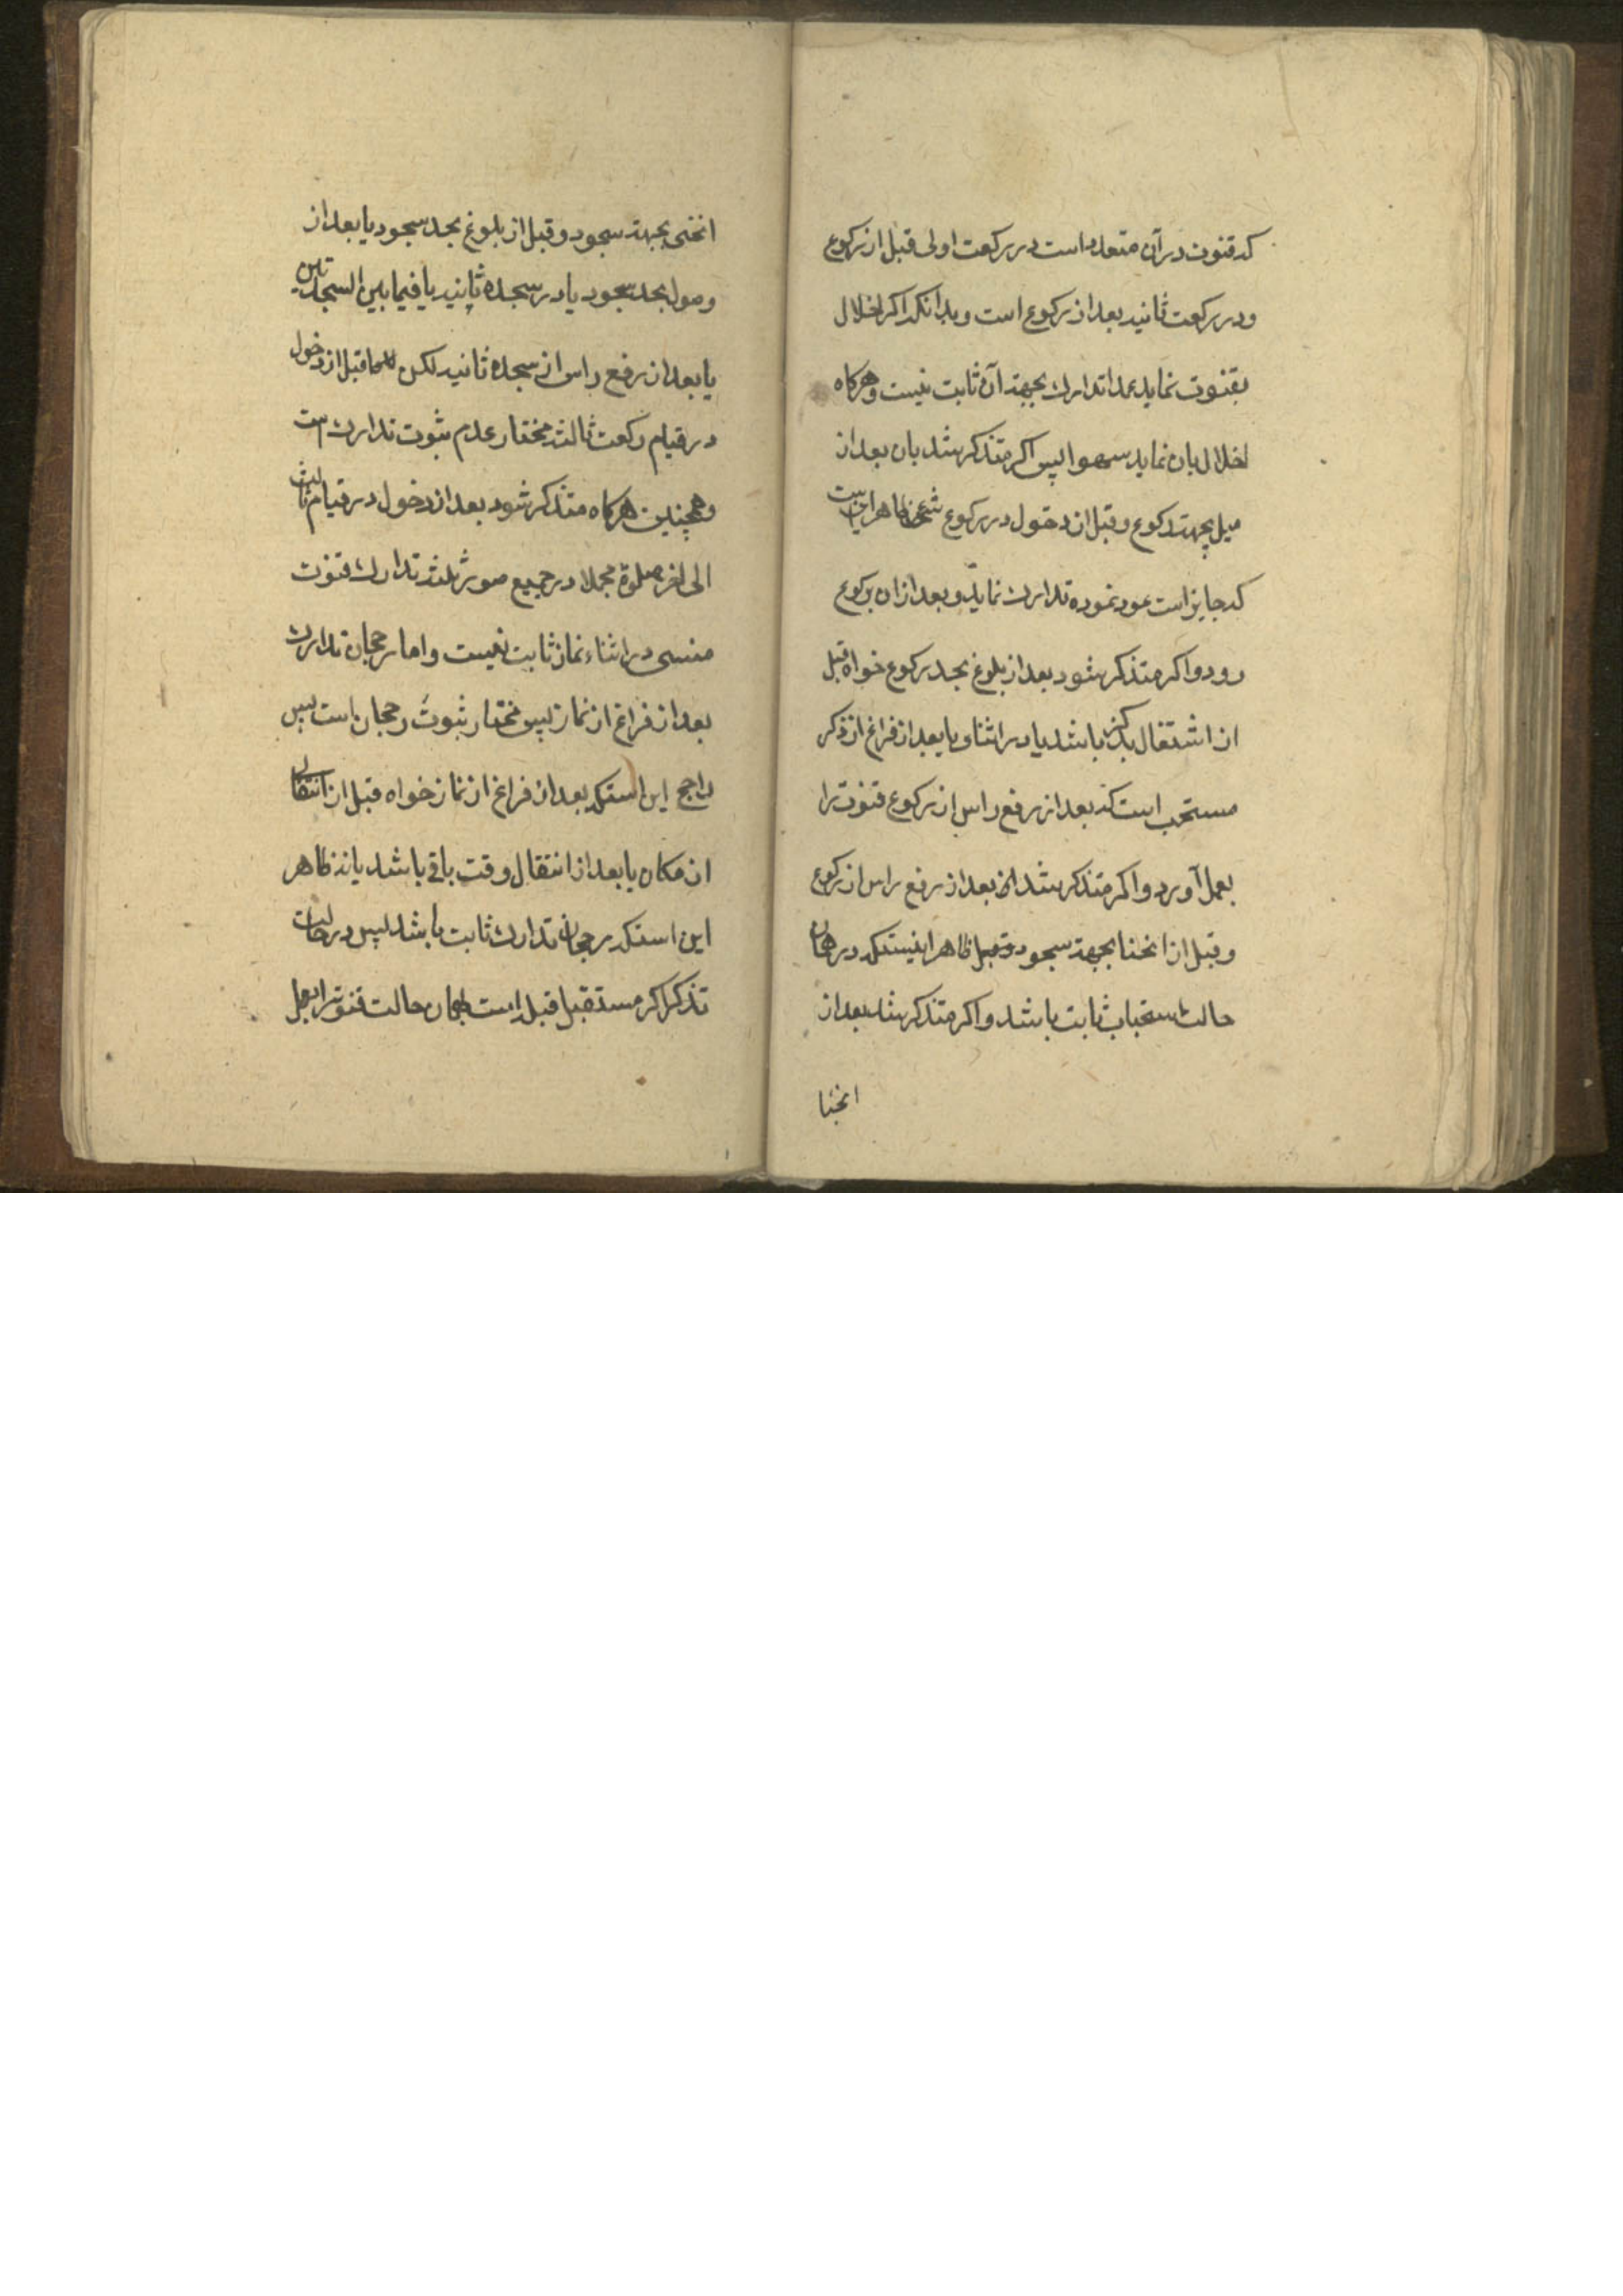 که قنوت در آن متعدد است در رکعت اولی قبل از رکوع
و در رکعت ثانیه بعد از رکوع است و بدانکه اکر اخلال
بقنوت نماید عمدا تدارک بجهة آن ثابت نیست و هرکاه
اخلال بان نماید سهوا پس اکر متذکر شد بان بعد از
میل بجهة رکوع و قبل از دخول در رکوع شرعی ظاهر این است
که جایز است عود نموده تدارک نماید و بعد از ان برکوع
رود و اکر متذکر شود بعد از بلوغ بحد رکوع خواه قبل
از اشتغال بذکر باشد یا در اثنا و یا بعد از فراغ از ذکر
مستحب است که بعد از رفع راس از رکوع قنوت را
بعمل آورد و اکر متذکر شد بعد از رفع راس از رکوع
و قبل از انحنا بجهة سجود ظاهر اینستکه در همان
حالت استحباب ثابت باشد و اکر متذکر شد بعد از
انحنا
انحنی بجهة سجود و قبل از بلوغ بحد سجود یا بعد از
وصول بحد سجود یا در سجده ثانیه یا فیما بین السجدتین
یا بعد از رفع راس از سجده ثانیه لکن قبل از دخول
در قیام رکعت ثالثه مختار عدم ثبوت تدارک است
و همچنین هرکاه متذکر شود بعد از دخول در قیام ثالث
الی اخر صلوة مجملا در جمیع صور ثلثه تدارک قنوت
منسی در اثناء نماز ثابت نیست و اما رجحان تدارک
بعد از فراغ از نماز پس مختار ثبوت رجحان است پس
راجح این استکه بعد از فراغ از نماز خواه قبل از انتقال
از مکان یا بعد از انتقال وقت باقی باشد یا نه ظاهر
این استکه رجحان تدارک ثابت باشد پس در حالت
تذکر اکر مستقبل قبله است بهمان حالت قنوت را بعمل